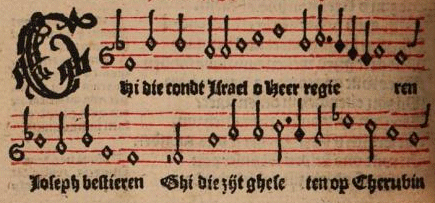 Ghi die condt Israel o heer regie ren
Joseph bestieren Ghi die zijt ghele ten op Cherubin